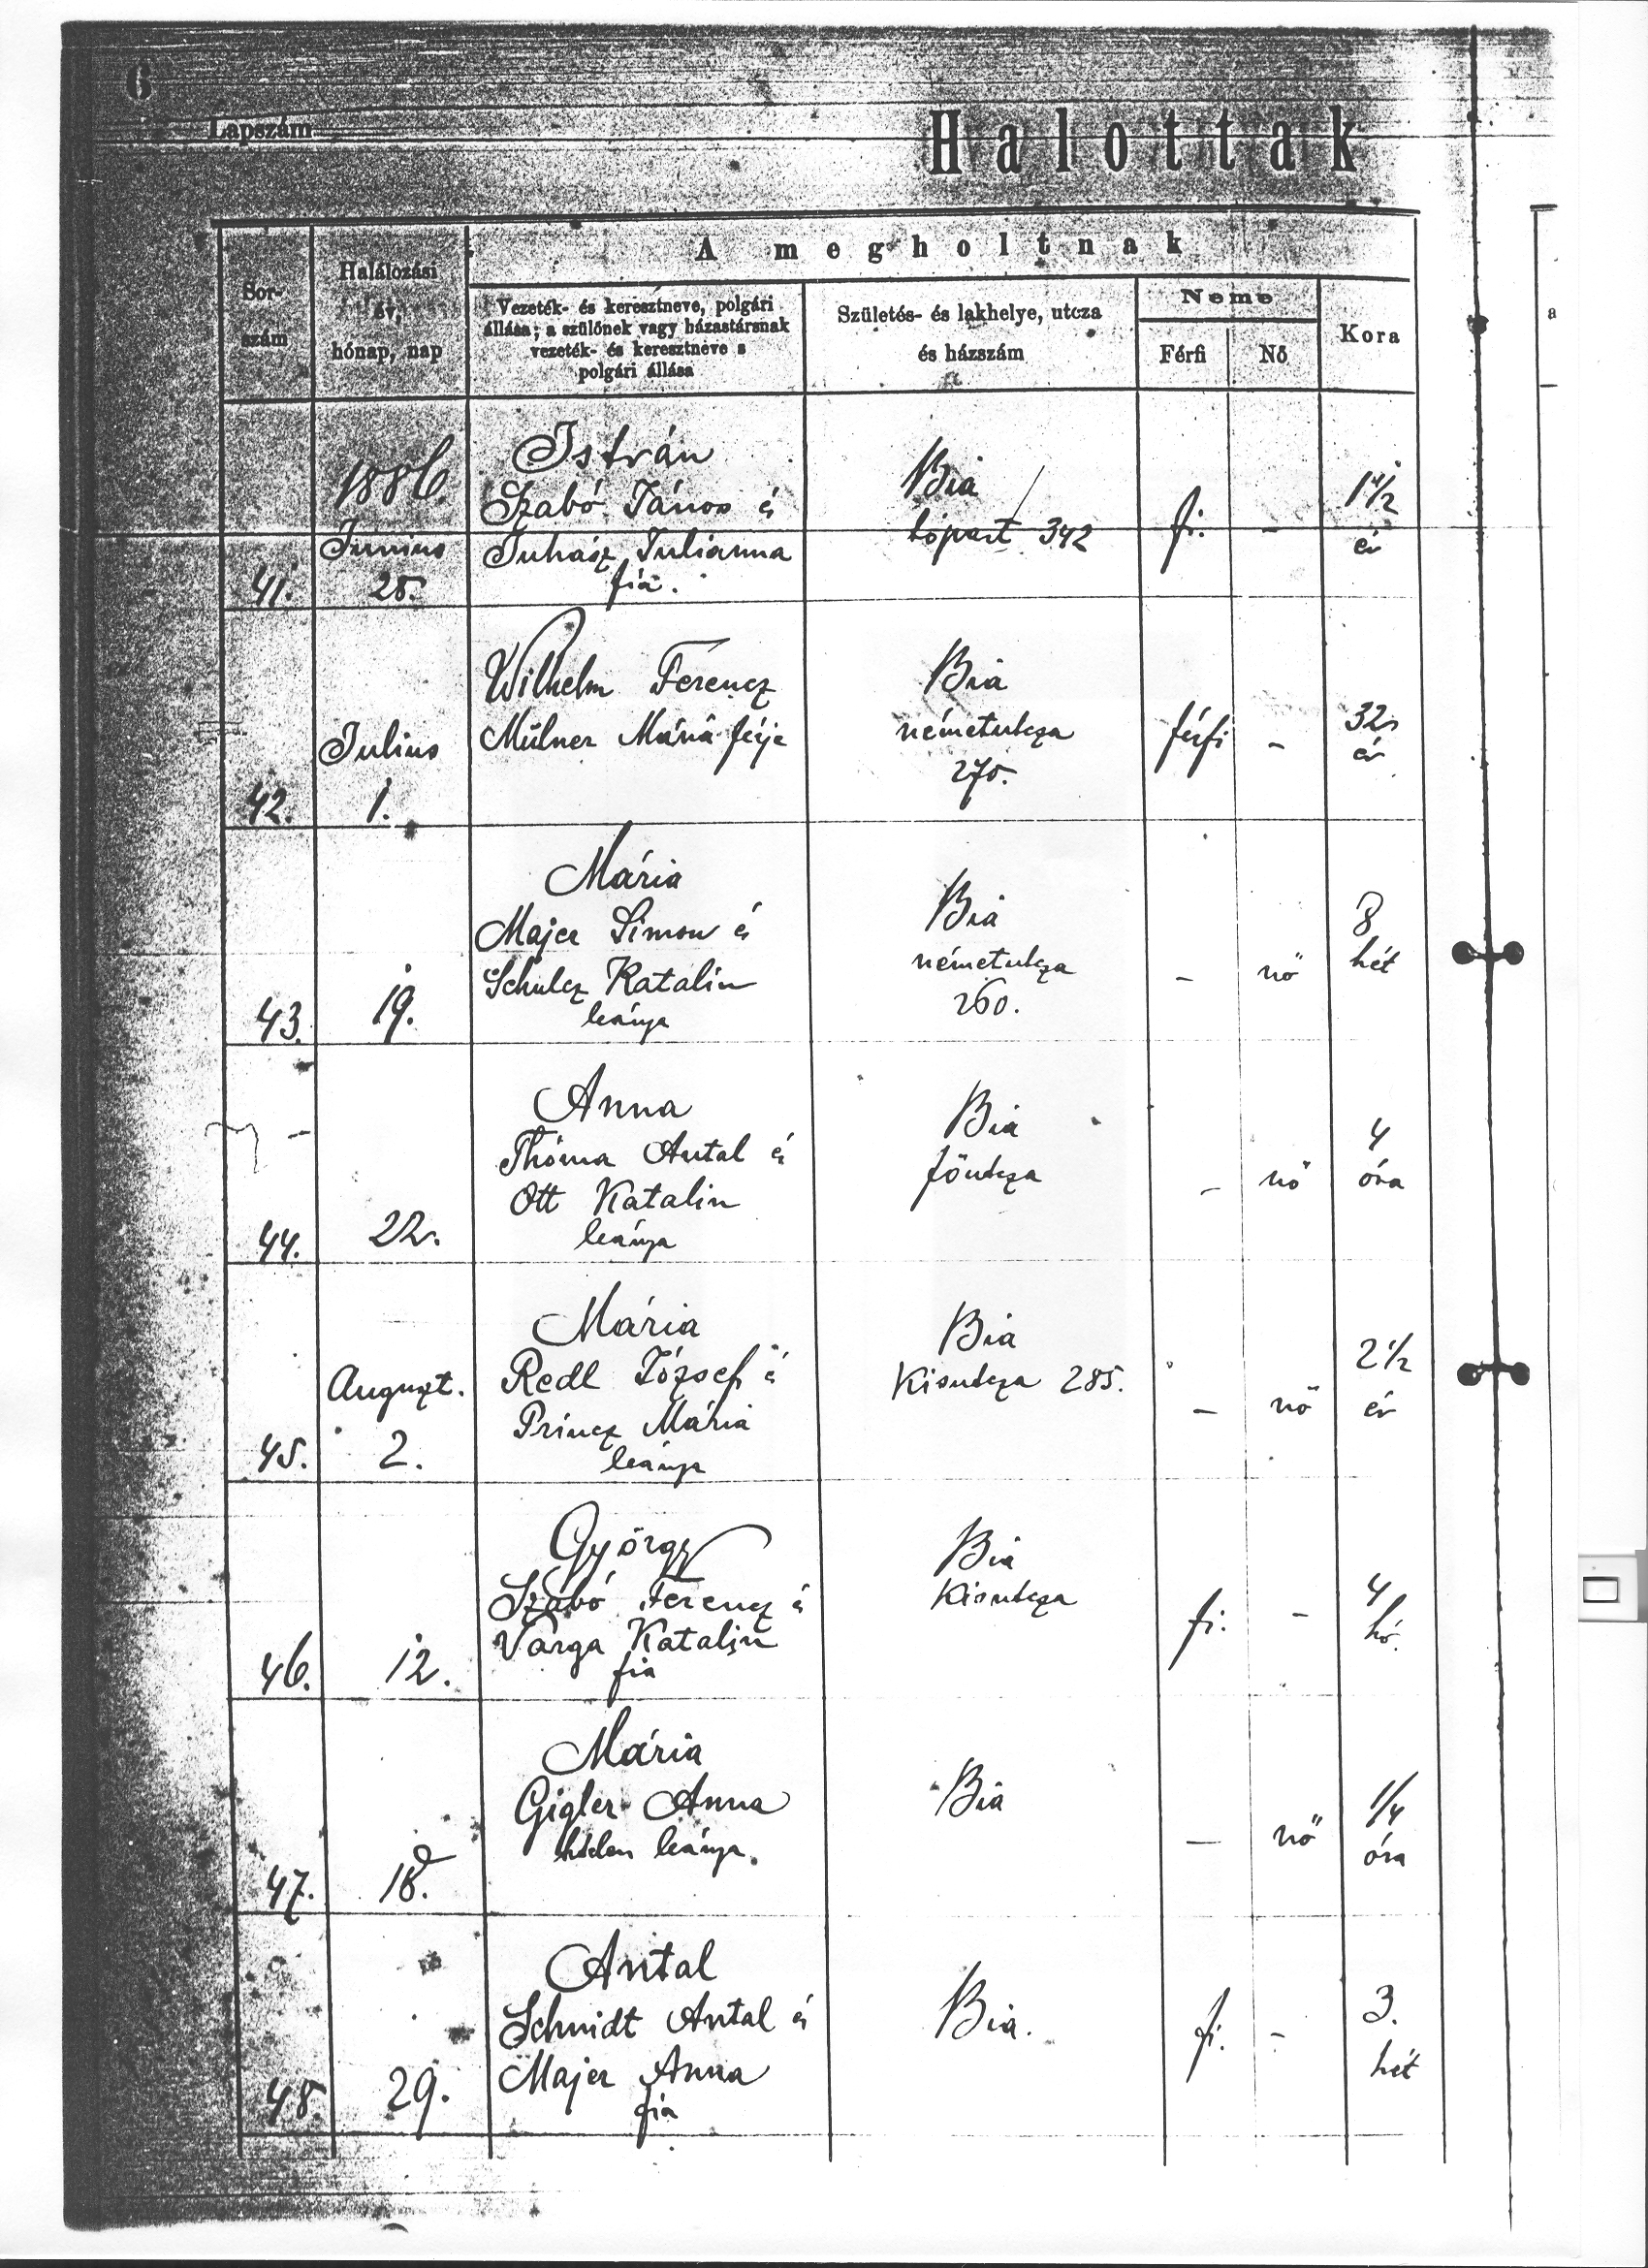 6
Lapszám
Halottak
A megholtnak
Sor-
szám
Halálozási
év,
hónap, nap
Vezeték- és keresztneve, polgári
állása; a szülőnek vagy házastársnak
vezeték- és keresztneve s
polgári állása
Születés- és lakhelye, utcza
és házszám
Neme
Férfi
Nő
Kora
a
41.
1886.
Junius
25.
István
Szabó János és
Juhász Julianna
fia.
Bia
tópart 342
fi.
-
1 1/2
év
42.
Julius
1.
Wilhelm Ferencz
Mülner Mária férje
Bia
németutcza
270.
férfi
-
32
év
43.
19.
Mária
Majer Simon és
Schulcz Katalin
leánya
Bia
németutcza
260.
-
nő
8
hét
44.
22.
Anna
Thóma Antal és
Ott Katalin
leánya
Bia
főutcza
-
nő
4
óra
45.
Auguszt.
2.
Mária
Redl József és
Princz Mária
leánya
Bia
Kisutcza 285.
-
nő
2 1/2
év
46.
12.
György
Szabó Ferencz és
Varga Katalin
fia
Bia
Kisutcza
fi.
-
4
hó.
47.
18.
Mária
Gigler Anna
leánya.
Bia
-
nő
1/4
óra
48.
29.
Antal
Schmidt Antal és
Majer Anna
fia
Bia.
fi.
-
3.
hét